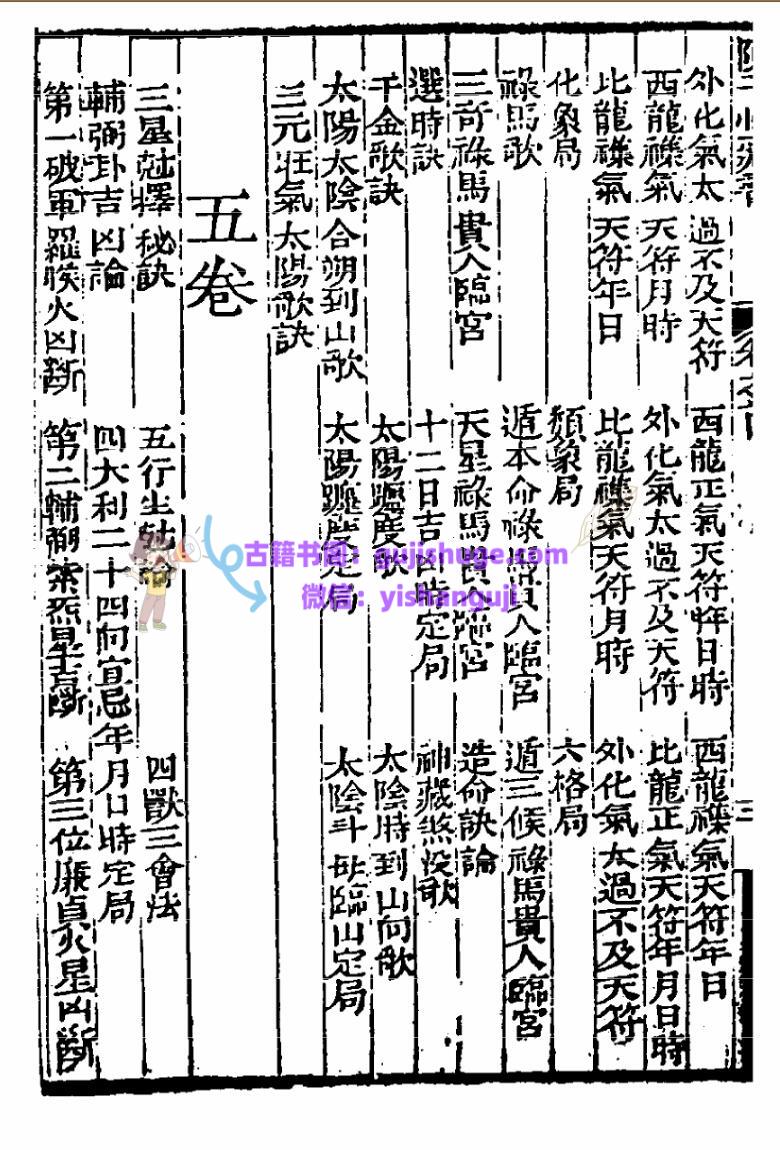 外化氣太過不及天符　西龍正氣天符年日時　西龍襍氣天符年日
西龍襍氣天符月時　外化氣太過不及天符　比龍正氣天符年月日時
比龍襍氣天符年日　比龍襍氣天符月時　外化氣太過不及天符
化象局　類象局　六格局
祿馬歌　遁本命祿馬貴人臨宮　遁三候祿馬貴人臨宮
三奇祿馬貴人臨宮　天星祿馬貴人臨宮　造命訣論
選時訣　十二日吉凶時定局　神藏煞沒歌
千金歌訣　太陽躔度歌　太陰時到山向歌
太陽太陰合朔到山歌　太陽躔度定局　太陰斗母臨山定局
三元旺氣太陽歌訣
五卷
三星尅擇秘訣　五行生尅　四獸三會法
輔弼卦吉凶論　四大利二十四向宜忌年月日時定局
第一破軍羅睺火凶斷　第二輔弼紫炁星吉斷　第三位廉貞火星凶斷
古籍书阁：gujishuge.com
微信：yishanguji